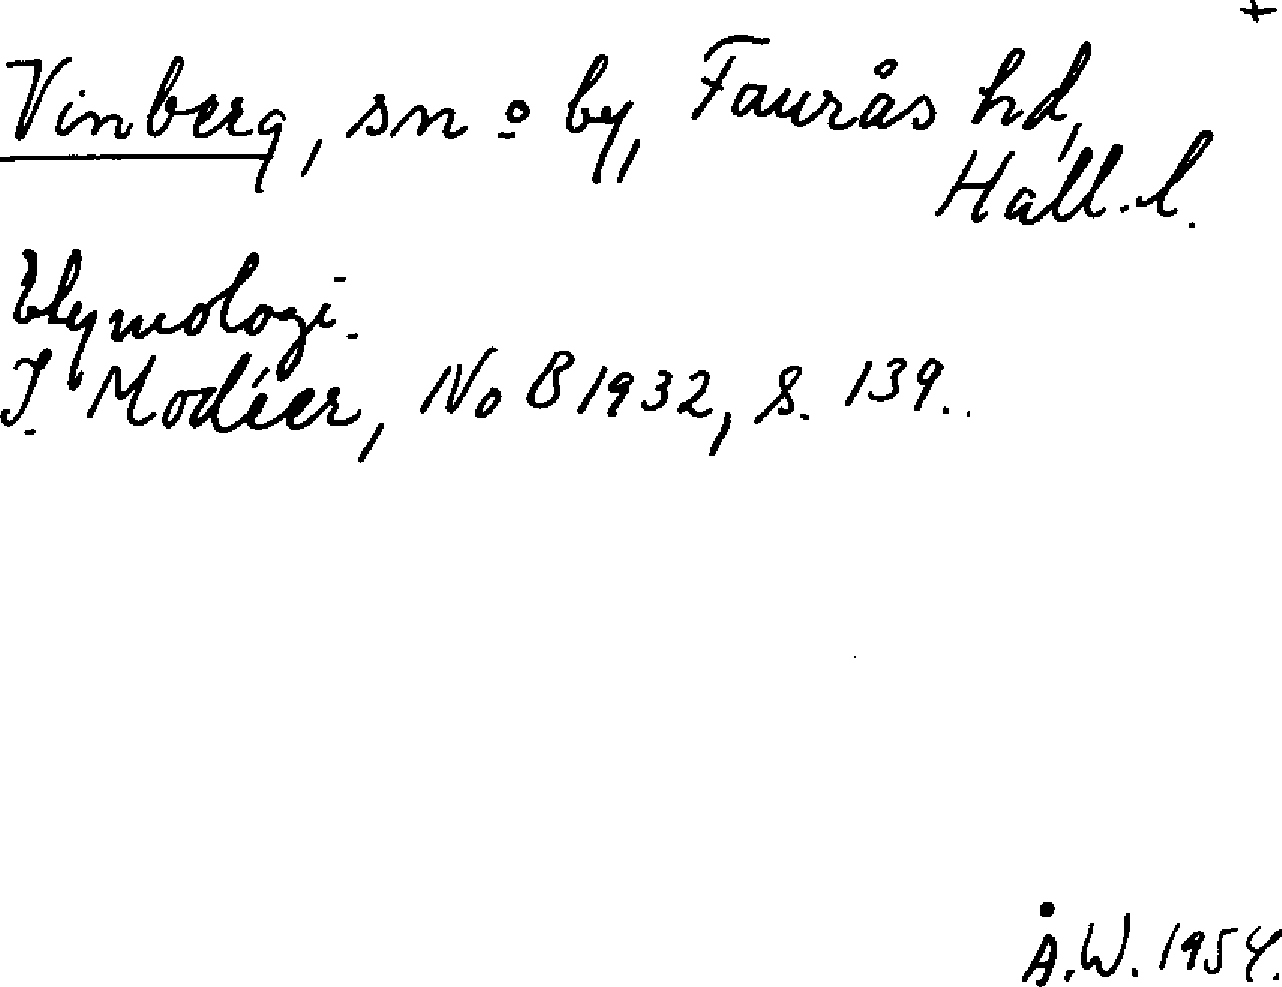 +
Vinberg, sn o by, Faurås hd,
Hall. l.
Etymologi.
I. Modéer, No B 1932, s. 139..
Å.W. 1954.